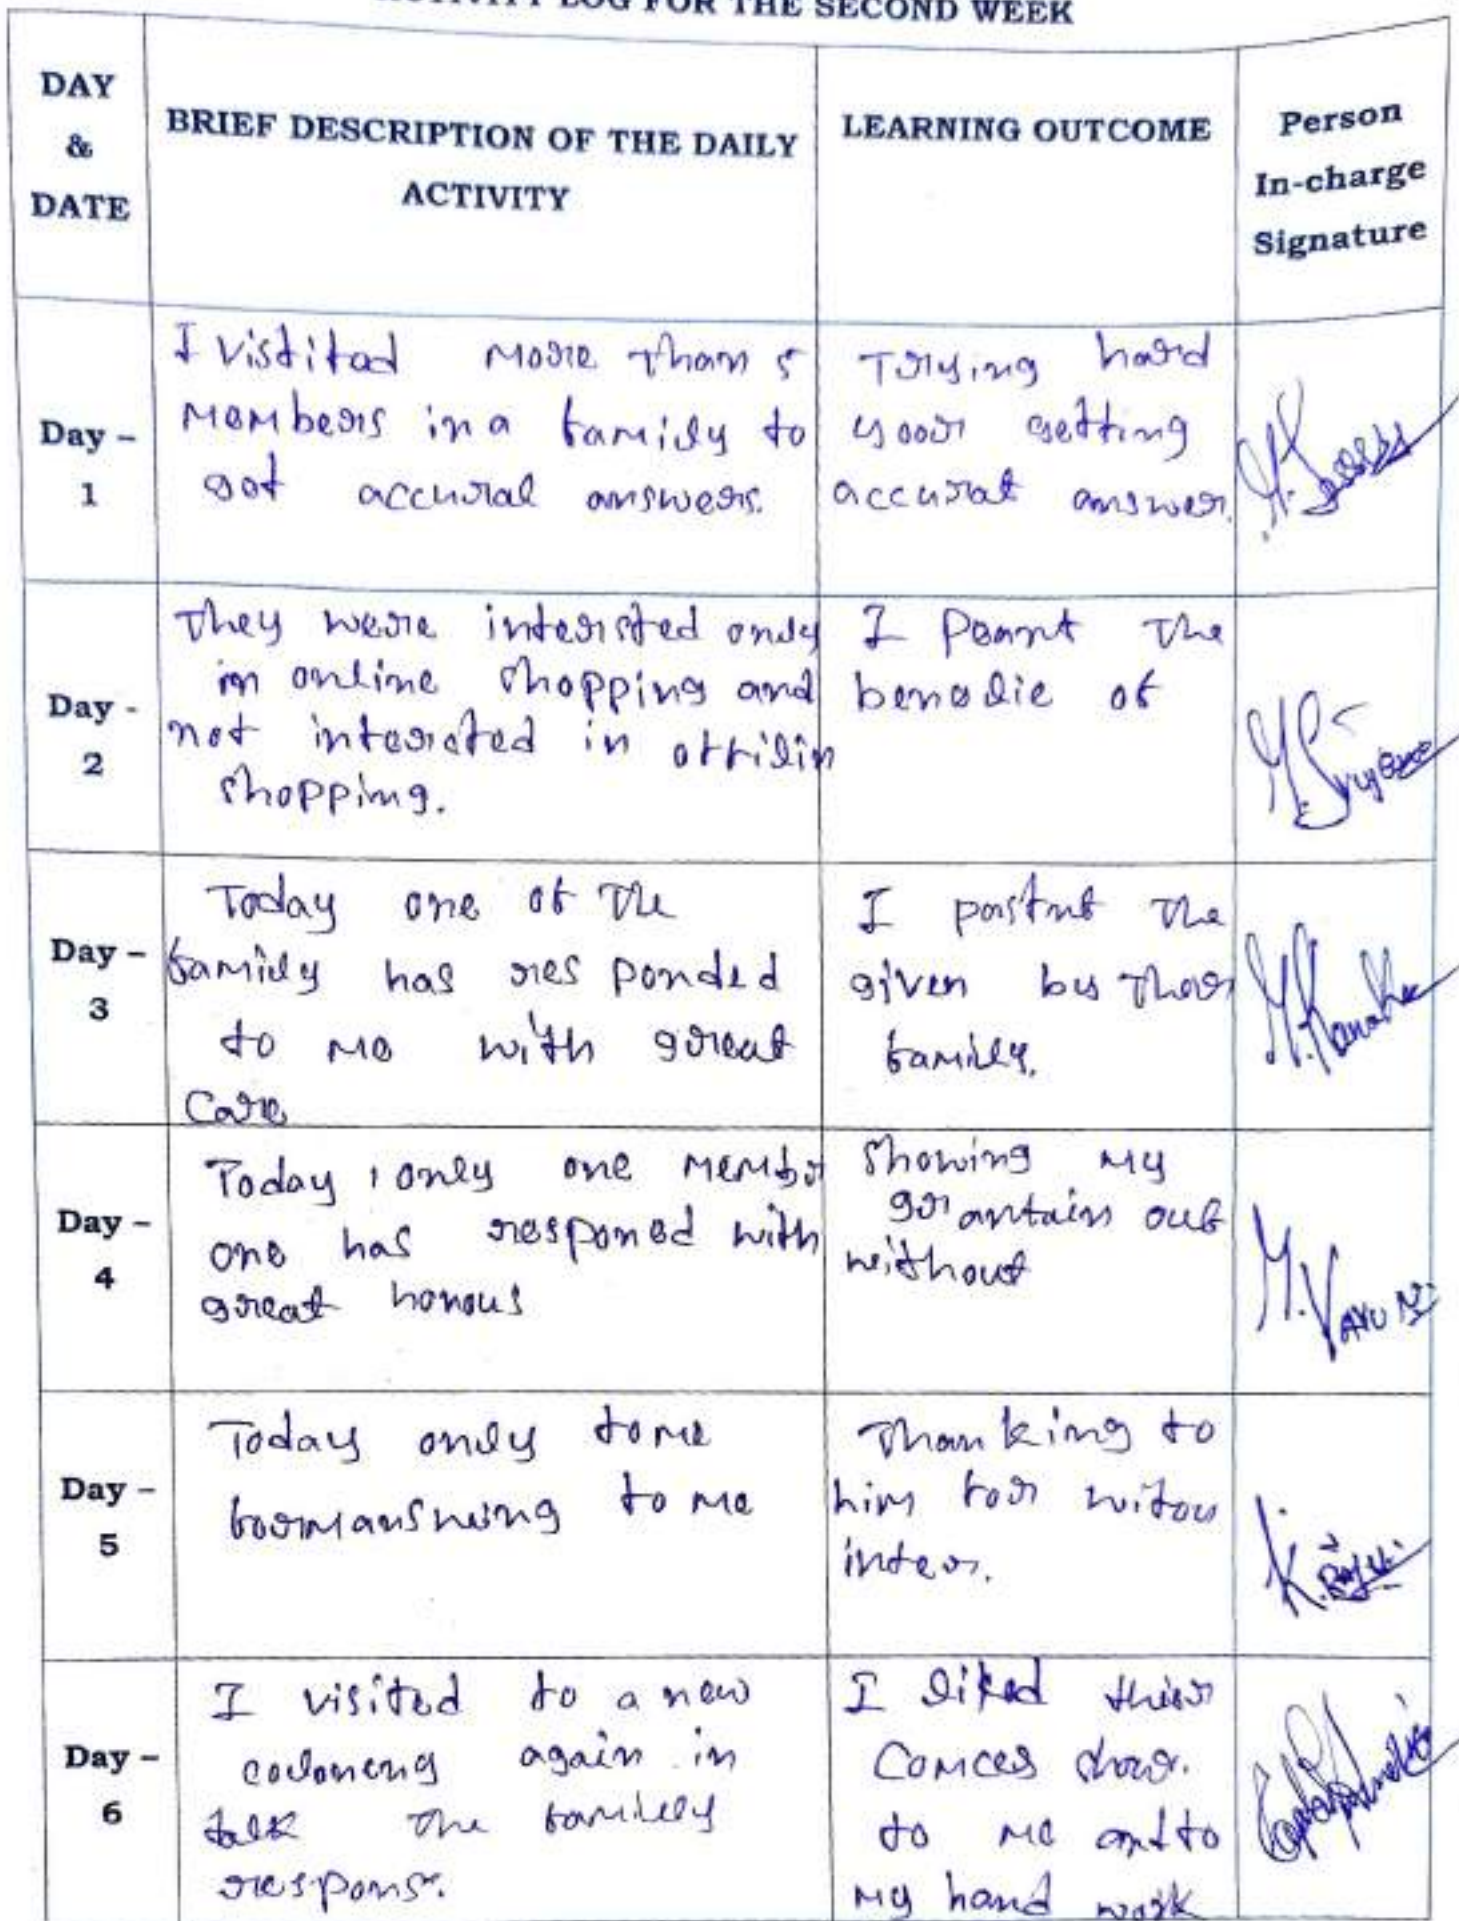 ACTIVITY LOG FOR THE SECOND WEEK
DAY
&
DATE
BRIEF DESCRIPTION OF THE DAILY
ACTIVITY
LEARNING OUTCOME
Person
In-charge
Signature
Day –
1
I vistited more than 5
members in a family to
got accural answers.
Trying hard
your getting
accurat answer.
Day -
2
They were intersted only
in online shopping and
not intersted in offilin
shopping.
I the
of
Day –
3
Today one of the
family has res ponded
to me with great
care
I the
given by
family.
Day –
4
Today, only one
one has responed with
great honous
Showing my
out
without
M. VARUNI
Day –
5
Today only tome
to me
Thanking to
him for
K.
Day –
6
I visited to a new
again in
talk the familly
respons.
I liked
to me and to
my hand work